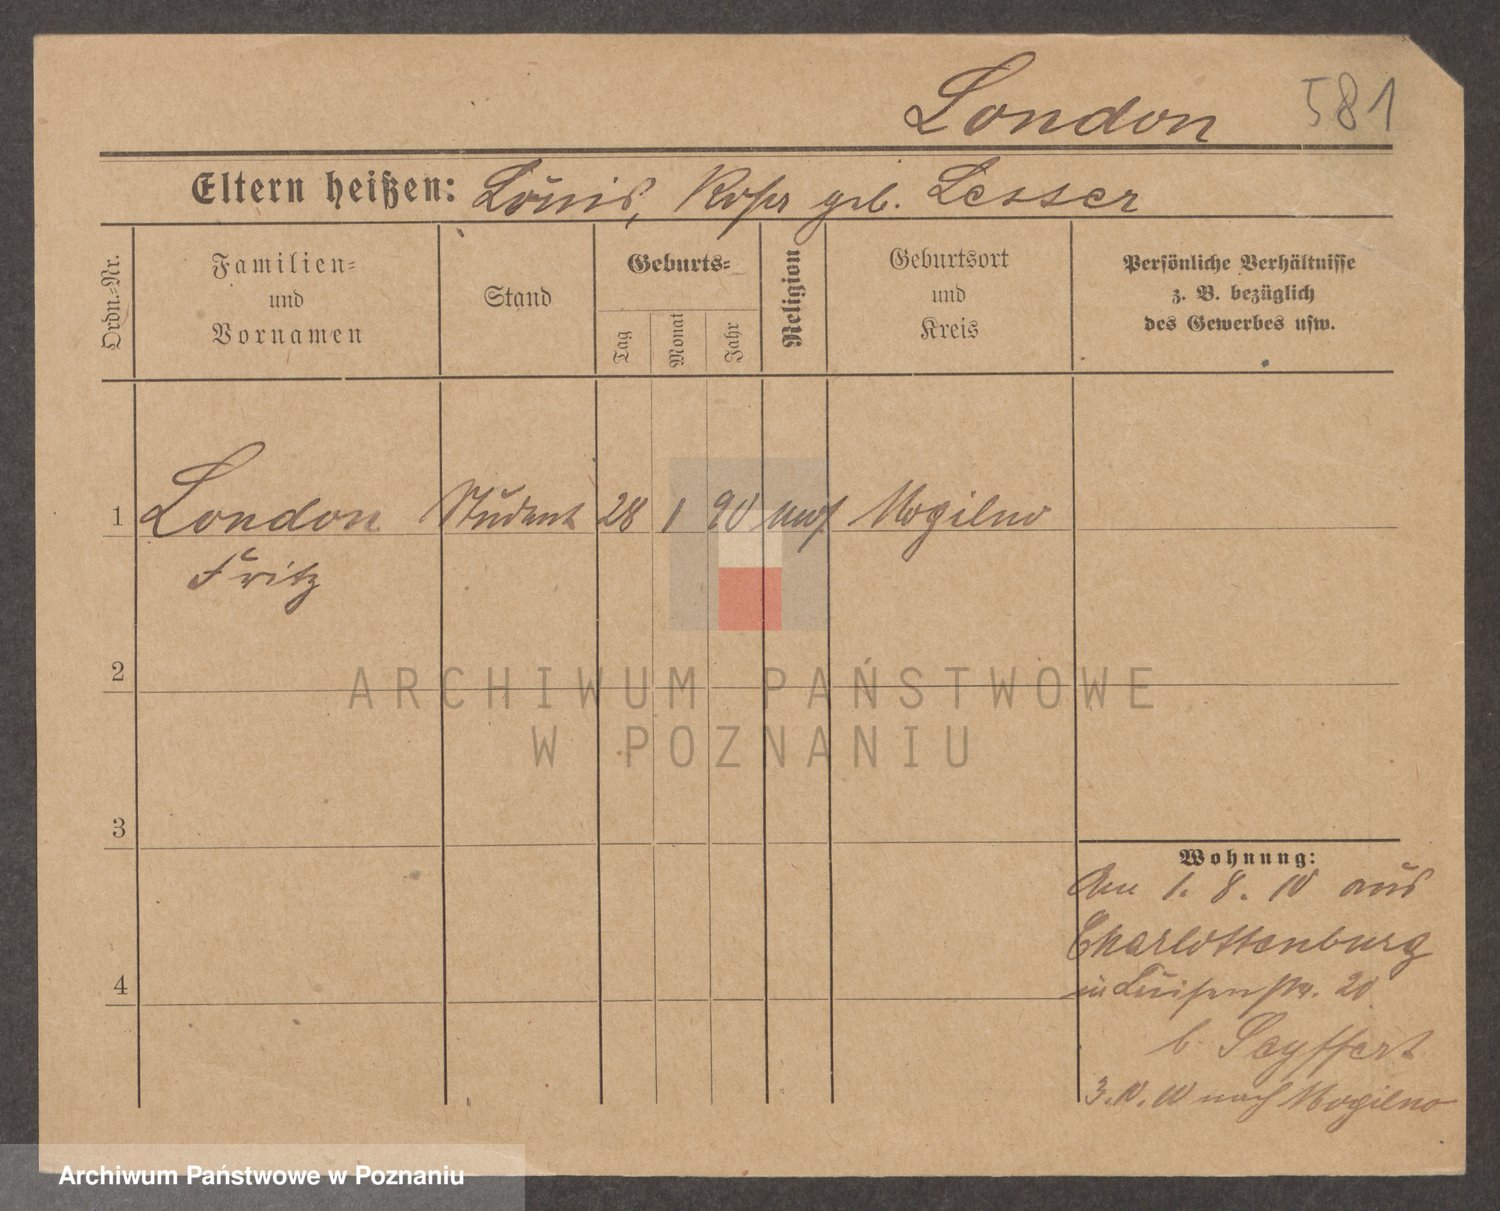 London 581
Eltern heißen: Louis, Rosa geb. Lesser
Ordn.-Nr.
Familien-
und
Vornamen
Stand
Geburts-
Tag
Monat
Jahr
Religion
Geburtsort
und
Kreis
Persönliche Verhältnisse
z. B. bezüglich
des Gewerbes usw.
1 London Student 28 1 90 mos Mogilno
Fritz
2
3
4
Wohnung:
Am 1. 8. 10 aus
Charlottenburg
in Luisenstr. 20
b. Seyffert
3. 10. 10 nach Mogilno
ARCHIWUM PAŃSTWOWE
W POZNANIU
Archiwum Państwowe w Poznaniu